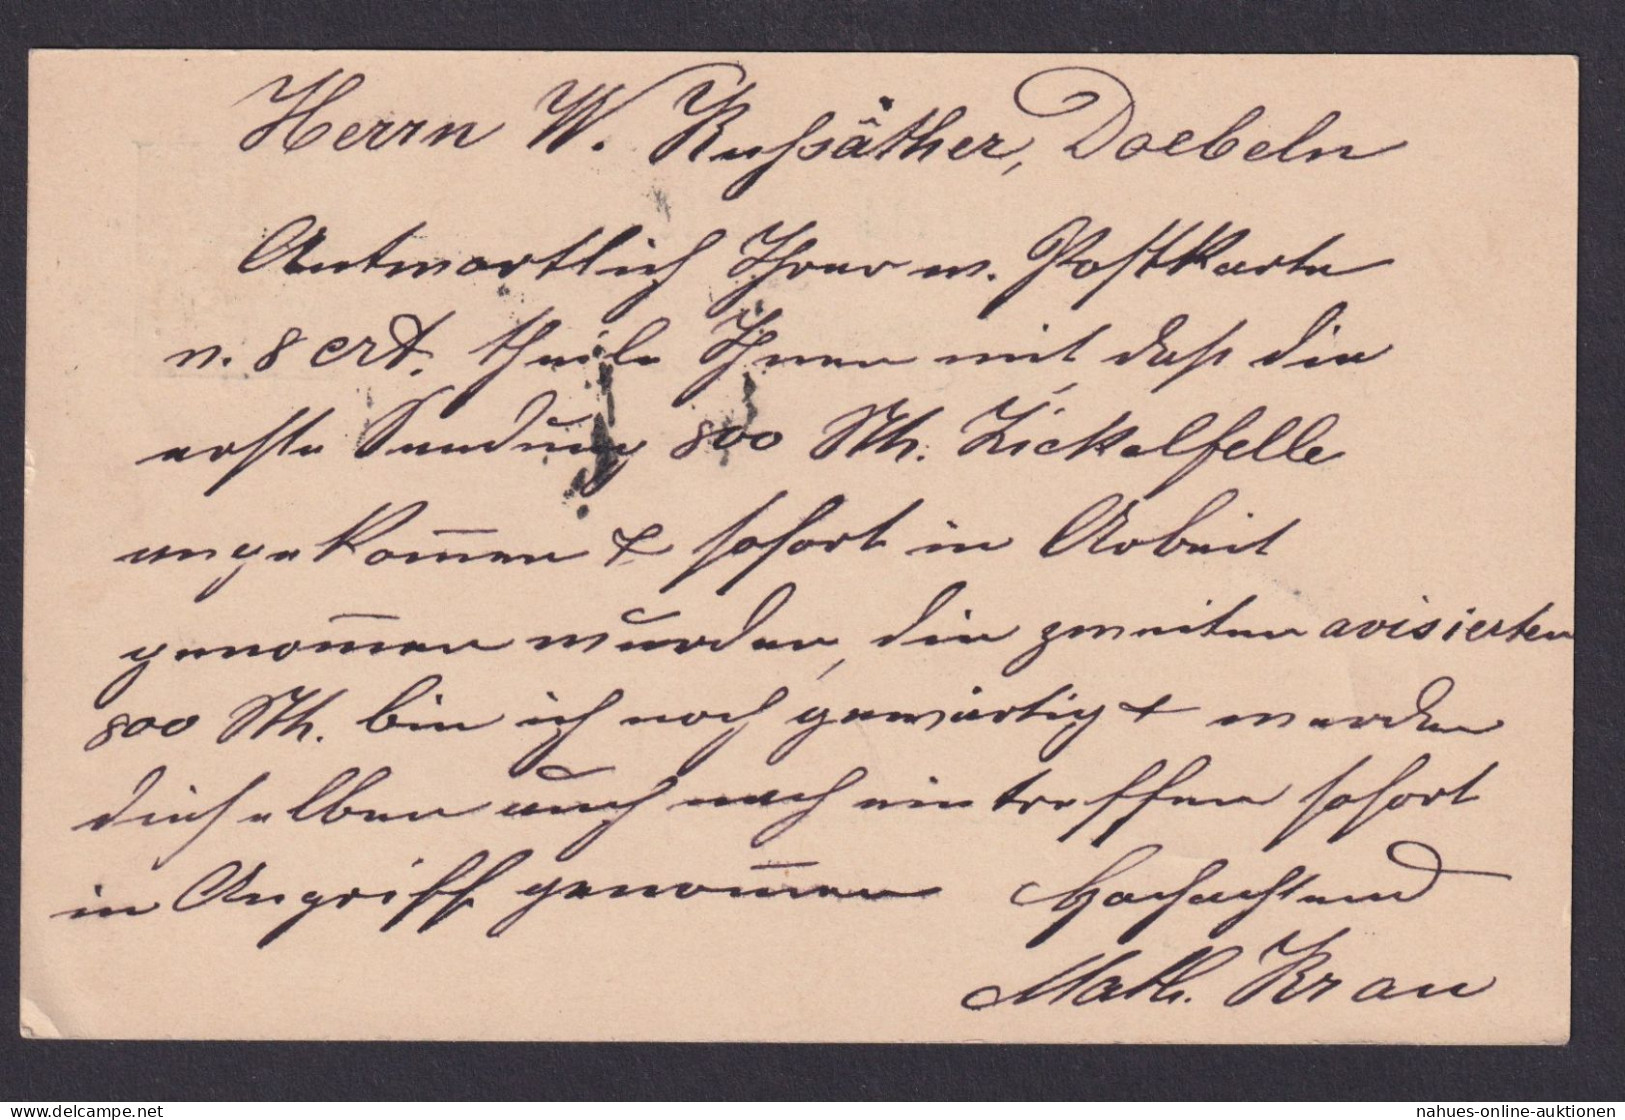 Herrn W. Kuhsäther, Doebeln
Antwortlich Ihrer w. Postkarte
v. 8 crt. theile Ihnen mit, daß die
erste Sendung 800 Stk. Zickelfelle
angekom̅en & sofort in Arbeit
genom̅en wurden, die zweiten avisierten
800 Stk. bin ich noch gewärtig & werden
dieselben auch nach eintreffen sofort
in Angriff genom̅en Hochachtend
Math. Krau
nahues-online-auktionen
delcampe.net